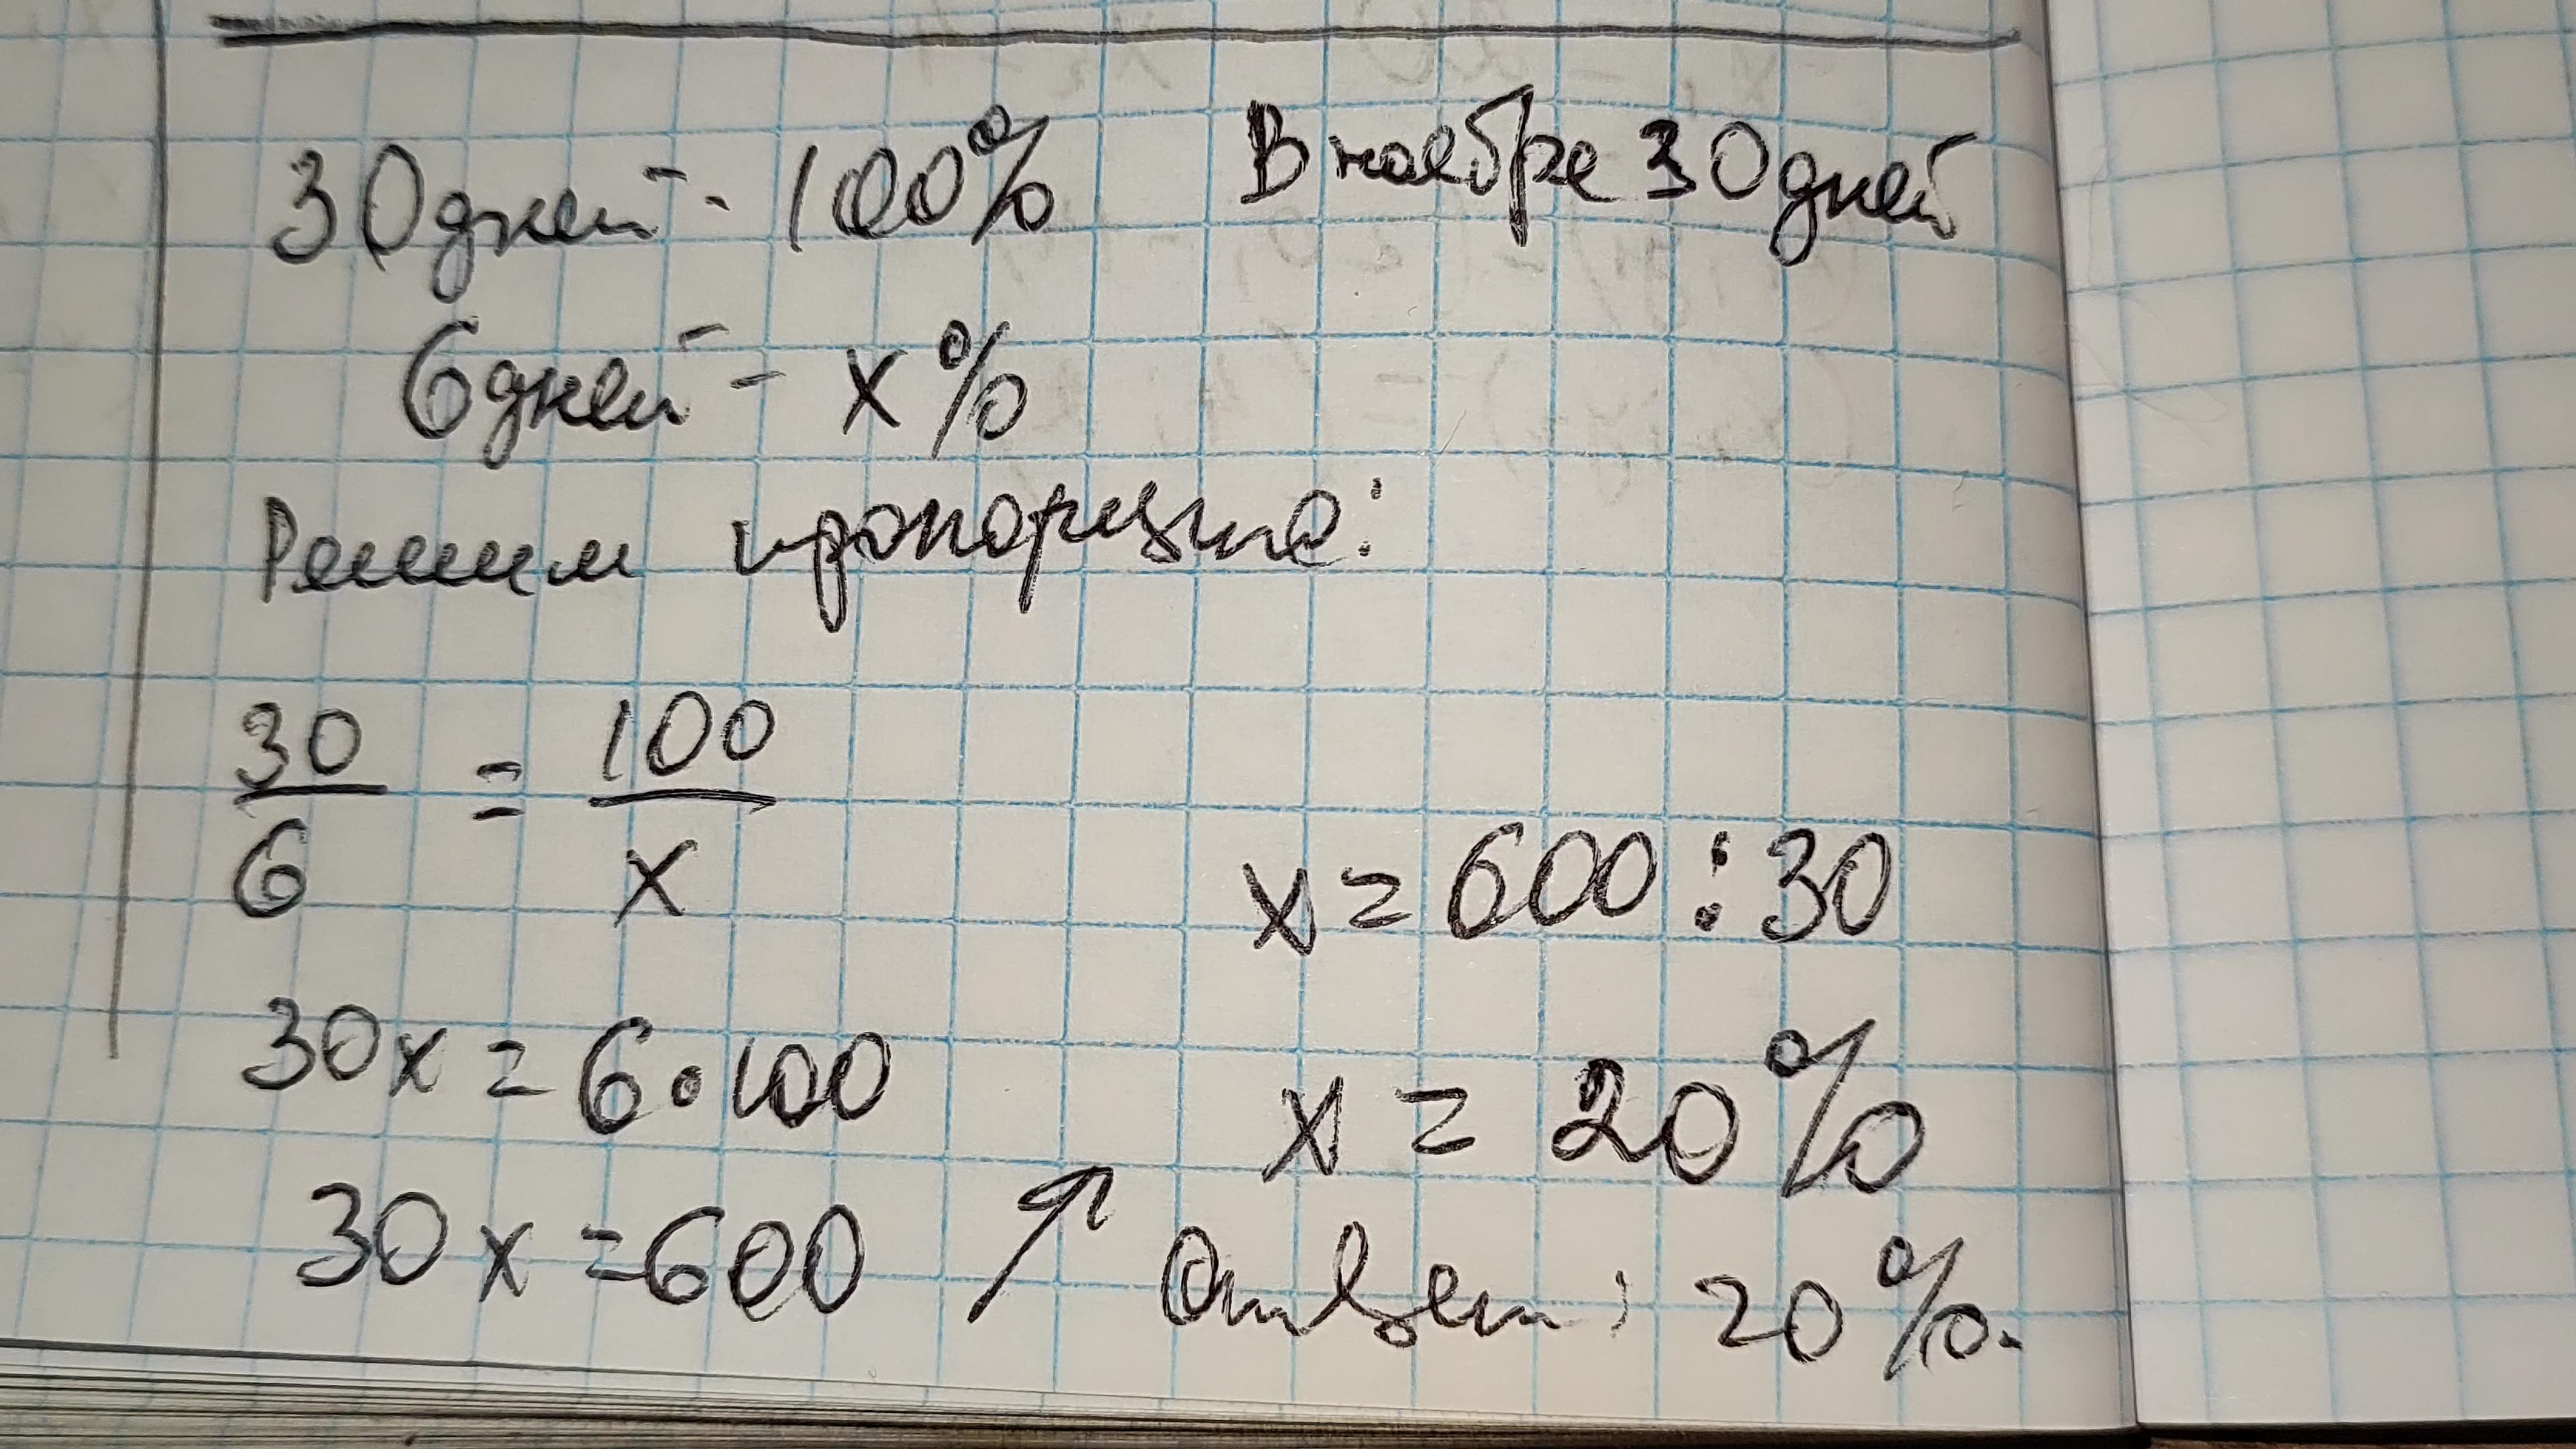 30 дней - 100% В ноябре 30 дней
6 дней - x%
Решим пропорцию:
30/6 = 100/x
30x = 6•100
30x = 600 ↗
x = 600 : 30
x = 20%
Ответ: 20%.